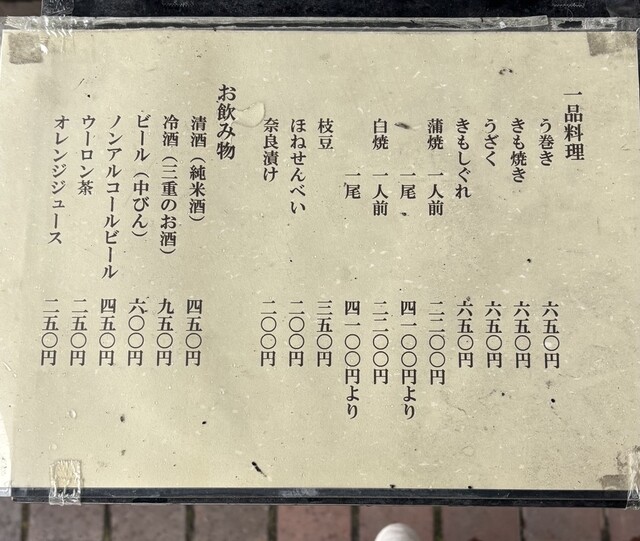 一品料理
う巻き 六五〇円
きも焼き 六五〇円
うざく 六五〇円
きもしぐれ 六五〇円
蒲焼 一人前 二二〇〇円
一尾 四一〇〇円より
白焼 一人前 二二〇〇円
一尾 四一〇〇円より
枝豆 三五〇円
ほねせんべい 二〇〇円
奈良漬け 二〇〇円
お飲み物
清酒（純米酒） 四五〇円
冷酒（三重のお酒） 九五〇円
ビール（中びん） 六〇〇円
ノンアルコールビール 四五〇円
ウーロン茶 二五〇円
オレンジジュース 二五〇円